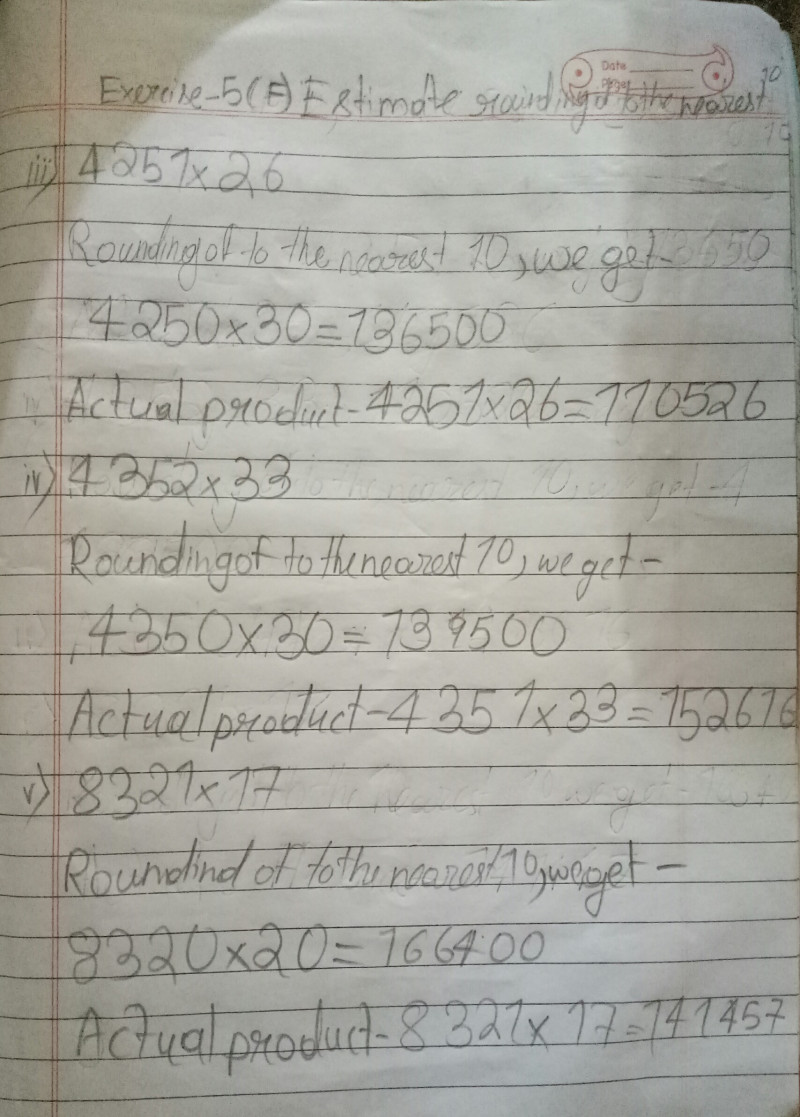 Date
Exercise-5(E) Estimate rounding of to the nearest 10
iii) 4251x26
Rounding of to the nearest 10, we get-
4250x30=136500
Actual product-4251x26=110526
iv) 4352x33
Rounding of to the nearest 10, we get-
4350x30=139500
Actual product-4351x33=152616
v) 8321x17
Roundind of to the nearest 10, we get-
8320x20=166400
Actual product-8321x17=141457